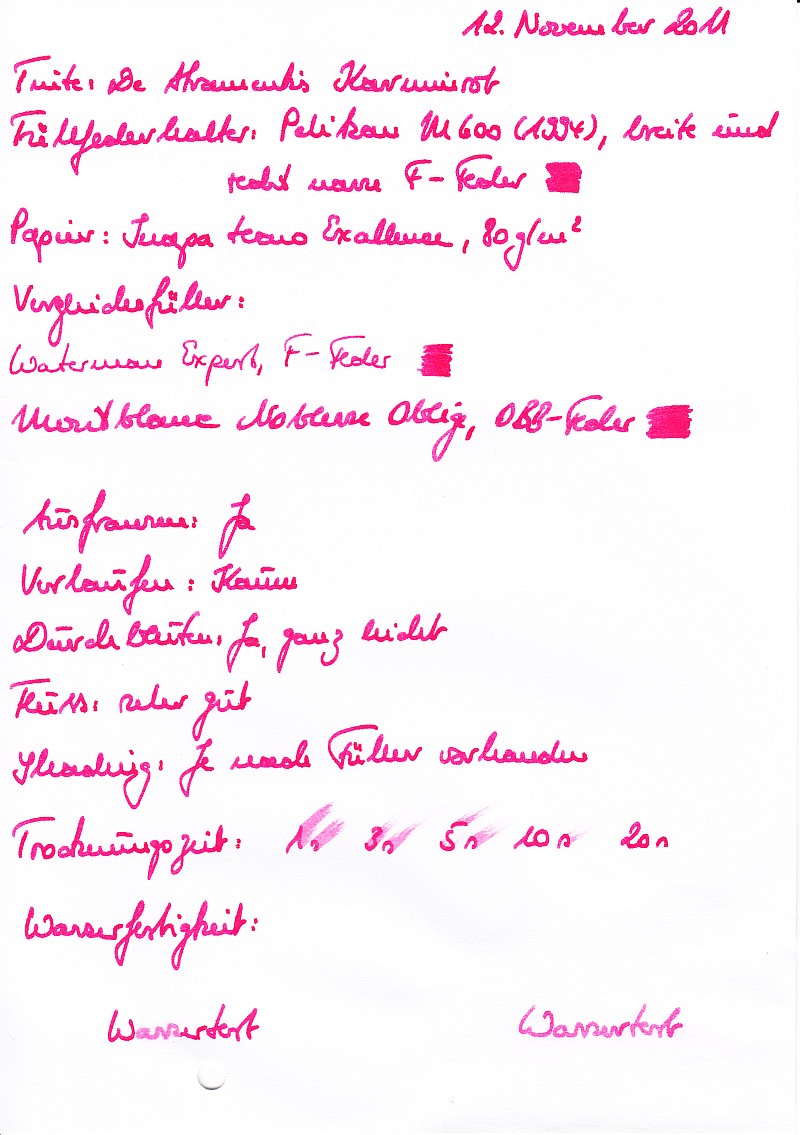 12. November 2011
Tinte: De Atramentis Karminrot
Füllfederhalter: Pelikan M600 (1994), breite und
recht nasse F-Feder
Papier: Inapa tecno Excellence, 80g/m²
Vergleichsfüller:
Waterman Expert, F-Feder
Montblanc Noblesse Oblige, OBB-Feder
Ausfransen: Ja
Verlaufen: Kaum
Durchbluten: Ja, ganz leicht
Fluss: sehr gut
Shading: Je nach Füller vorhanden
Trocknungszeit: 1s 3s 5s 10s 20s
Wasserfestigkeit:
Wassertest Wassertest